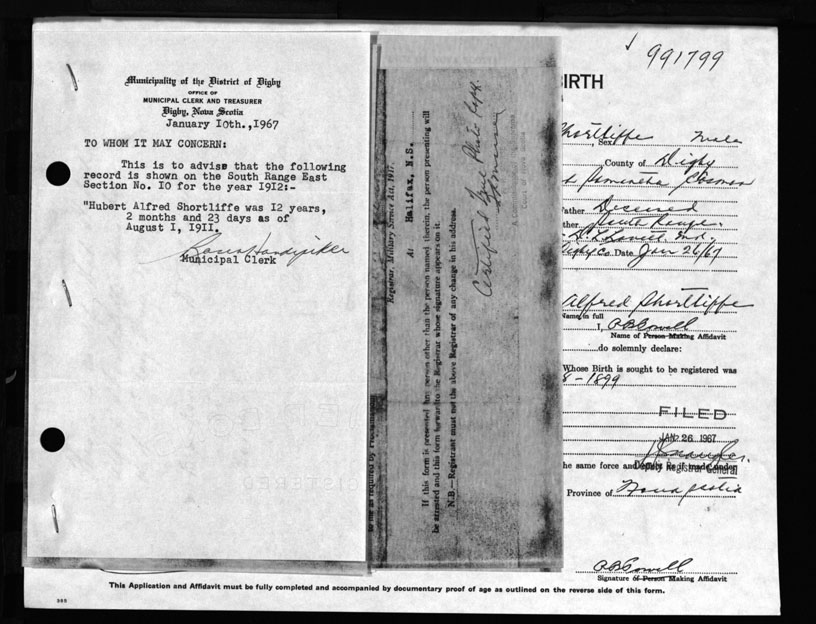 Municipality of the District of Digby
OFFICE OF
MUNICIPAL CLERK AND TREASURER
Digby, Nova Scotia
January 10th.,1967
TO WHOM IT MAY CONCERN:
This is to advise that the following
record is shown on the South Range East
Section No. IO for the year I9I2:-
"Hubert Alfred Shortliffe was I2 years,
2 months and 23 days as of
August I, I9II.
Municipal Clerk
Registrar, Military Service Act, 1917.
At Halifax, N.S.
If this form is presented by any person other than the person named therein, the person presenting will
be arrested and this form forwarded to the Registrar whose signature appears on it.
N.B.—Registrant must notify the above Registrar of any change in his address.
Certified True Photo Copy.
991799
BIRTH
Shortliffe, Sex Male
County of Digby
Cosman
Father Deceased
Date Jan 26/67
Alfred Shortliffe
Name in full
I,
Name of Person Making Affidavit
do solemnly declare:
Whose Birth is sought to be registered was
8-1899
FILED
JAN 26 1967
Deputy Registrar General
he same force and effect as if made under
Province of Nova Scotia
Signature of Person Making Affidavit
This Application and Affidavit must be fully completed and accompanied by documentary proof of age as outlined on the reverse side of this form.